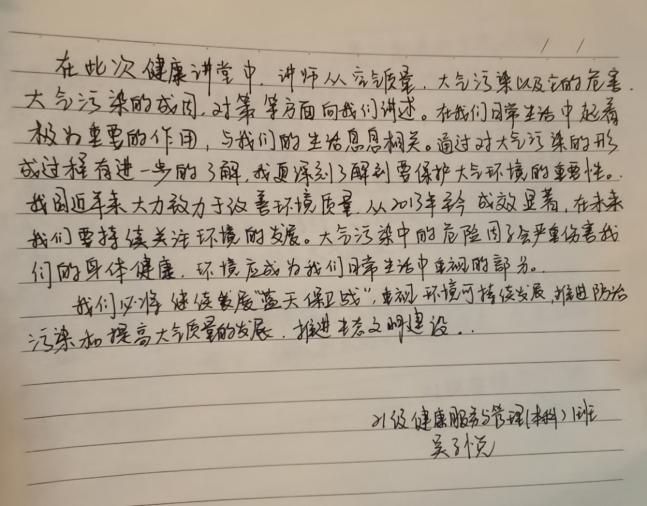 在此次健康讲堂中，讲师从空气质量，大气污染以及它的危害，
大气污染的成因，对策等方面向我们讲述。在我们日常生活中起着
极为重要的作用，与我们的生活息息相关。通过对大气污染的形
成过程有进一步的了解，我更深刻了解到要保护大气环境的重要性。
我国近年来大力致力于改善环境质量，从2013年至今成效显著，在未来
我们要持续关注环境的发展。大气污染中的危险因子会严重伤害我
们的身体健康，环境应成为我们日常生活中重视的部分。
我们必将继续发展"蓝天保卫战"，重视环境可持续发展，推进防治
污染和提高大气质量的发展，推进生态文明建设。
21级健康服务与管理(本科)1班
吴子悦